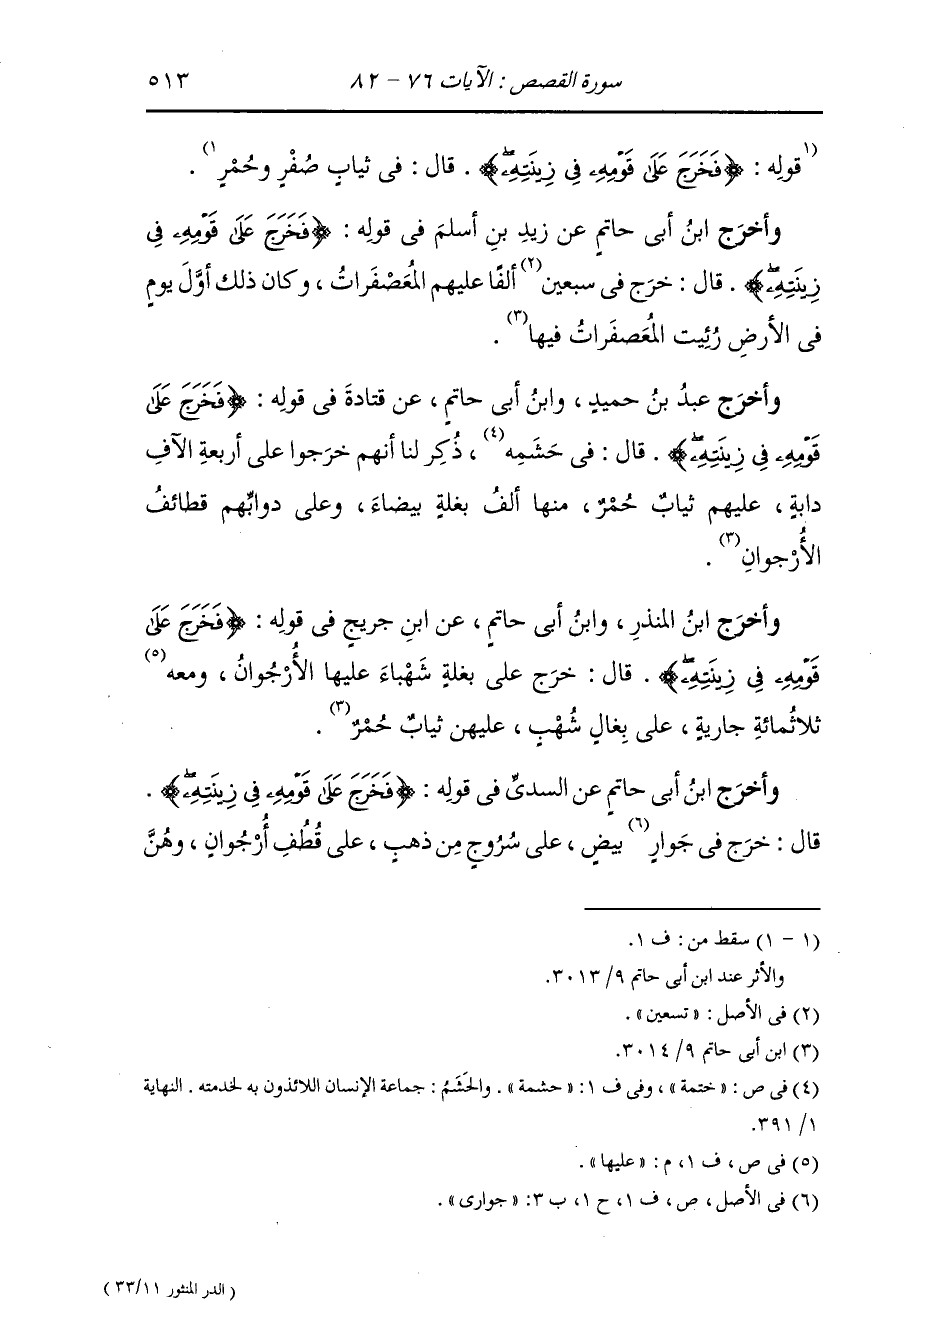 سورة القصص : الآيات ٧٦ - ٨٢ ٥١٣
(١قوله : ﴿فَخَرَجَ عَلَىٰ قَوْمِهِۦ فِى زِينَتِهِۦۖ﴾ . قال : فى ثيابٍ صُفْرٍ وحُمْرٍ١) .
وأخرَج ابنُ أبى حاتمٍ عن زيدِ بنِ أسلمَ فى قولِه : ﴿فَخَرَجَ عَلَىٰ قَوْمِهِۦ فِى
زِينَتِهِۦۖ﴾ . قال : خرَج فى سبعين(٢) ألفًا عليهم المُعَصْفَراتُ ، وكان ذلك أوَّلَ يومٍ
فى الأرضِ رُئِيت المُعَصفَراتُ فيها(٣) .
وأخرَج عبدُ بنُ حميدٍ ، وابنُ أبى حاتمٍ ، عن قتادةَ فى قولِه : ﴿فَخَرَجَ عَلَىٰ
قَوْمِهِۦ فِى زِينَتِهِۦۖ﴾ . قال : فى حَشَمِه(٤) ، ذُكِر لنا أنهم خرَجوا على أربعةِ آلافِ
دابةٍ ، عليهم ثيابٌ حُمْرٌ ، منها ألفُ بغلةٍ بيضاءَ ، وعلى دوابِّهم قطائفُ
الأُرْجوانِ(٣) .
وأخرَج ابنُ المنذرِ ، وابنُ أبى حاتمٍ ، عن ابنِ جريجٍ فى قولِه : ﴿فَخَرَجَ عَلَىٰ
قَوْمِهِۦ فِى زِينَتِهِۦۖ﴾ . قال : خرَج على بغلةٍ شَهْباءَ عليها الأُرْجُوانُ ، ومعه(٥)
ثلاثُمائةِ جاريةٍ ، على بِغالٍ شُهْبٍ ، عليهن ثيابٌ حُمْرٌ(٣) .
وأخرَج ابنُ أبى حاتمٍ عن السدىِّ فى قولِه : ﴿فَخَرَجَ عَلَىٰ قَوْمِهِۦ فِى زِينَتِهِۦۖ﴾ .
قال : خرَج فى جَوارٍ(٦) بيضٍ ، على سُرُوجٍ مِن ذهبٍ ، على قُطُفِ أُرْجوانٍ ، وهُنَّ
(١ - ١) سقط من : ف ١.
والأثر عند ابن أبى حاتم ٩/ ٣٠١٣.
(٢) فى الأصل : «تسعين» .
(٣) ابن أبى حاتم ٩/ ٣٠١٤.
(٤) فى ص : «ختمة» ، وفى ف ١: «حشمة» . والحَشَمُ : جماعة الإنسان اللائذون به لخدمته . النهاية
١/ ٣٩١.
(٥) فى ص ، ف ١، م : «عليها» .
(٦) فى الأصل ، ص ، ف ١، ح ١، ب ٣: «جوارى» .
( الدر المنثور ٣٣/١١ )